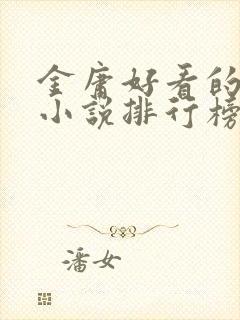 金庸好看的
小说排行榜
潘女